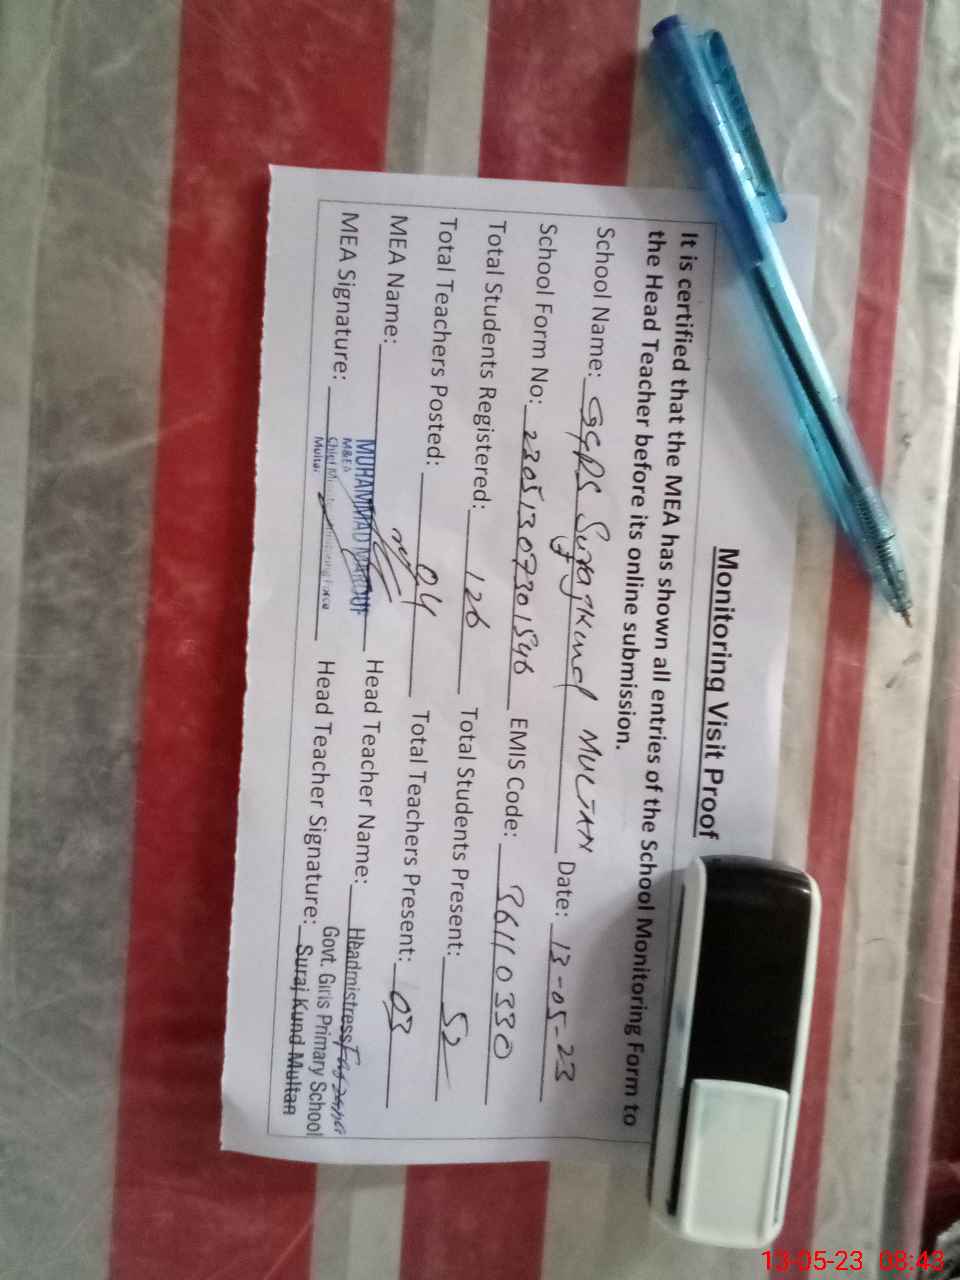 Monitoring Visit Proof
It is certified that the MEA has shown all entries of the School Monitoring Form to
the Head Teacher before its online submission.
School Name: GGPS Surajkund MULTAN Date: 13-05-23
School Form No: 23051307301546 EMIS Code: 36110330
Total Students Registered: 126 Total Students Present: 52
Total Teachers Posted: 04 Total Teachers Present: 03
MEA Name: MUHAMMAD MAROUF Head Teacher Name: Headmistress Farzana
M&EA
MEA Signature: Chief Minister Monitoring Force Head Teacher Signature: Govt. Girls Primary School
Multan Suraj Kund Multan
13-05-23 08:43